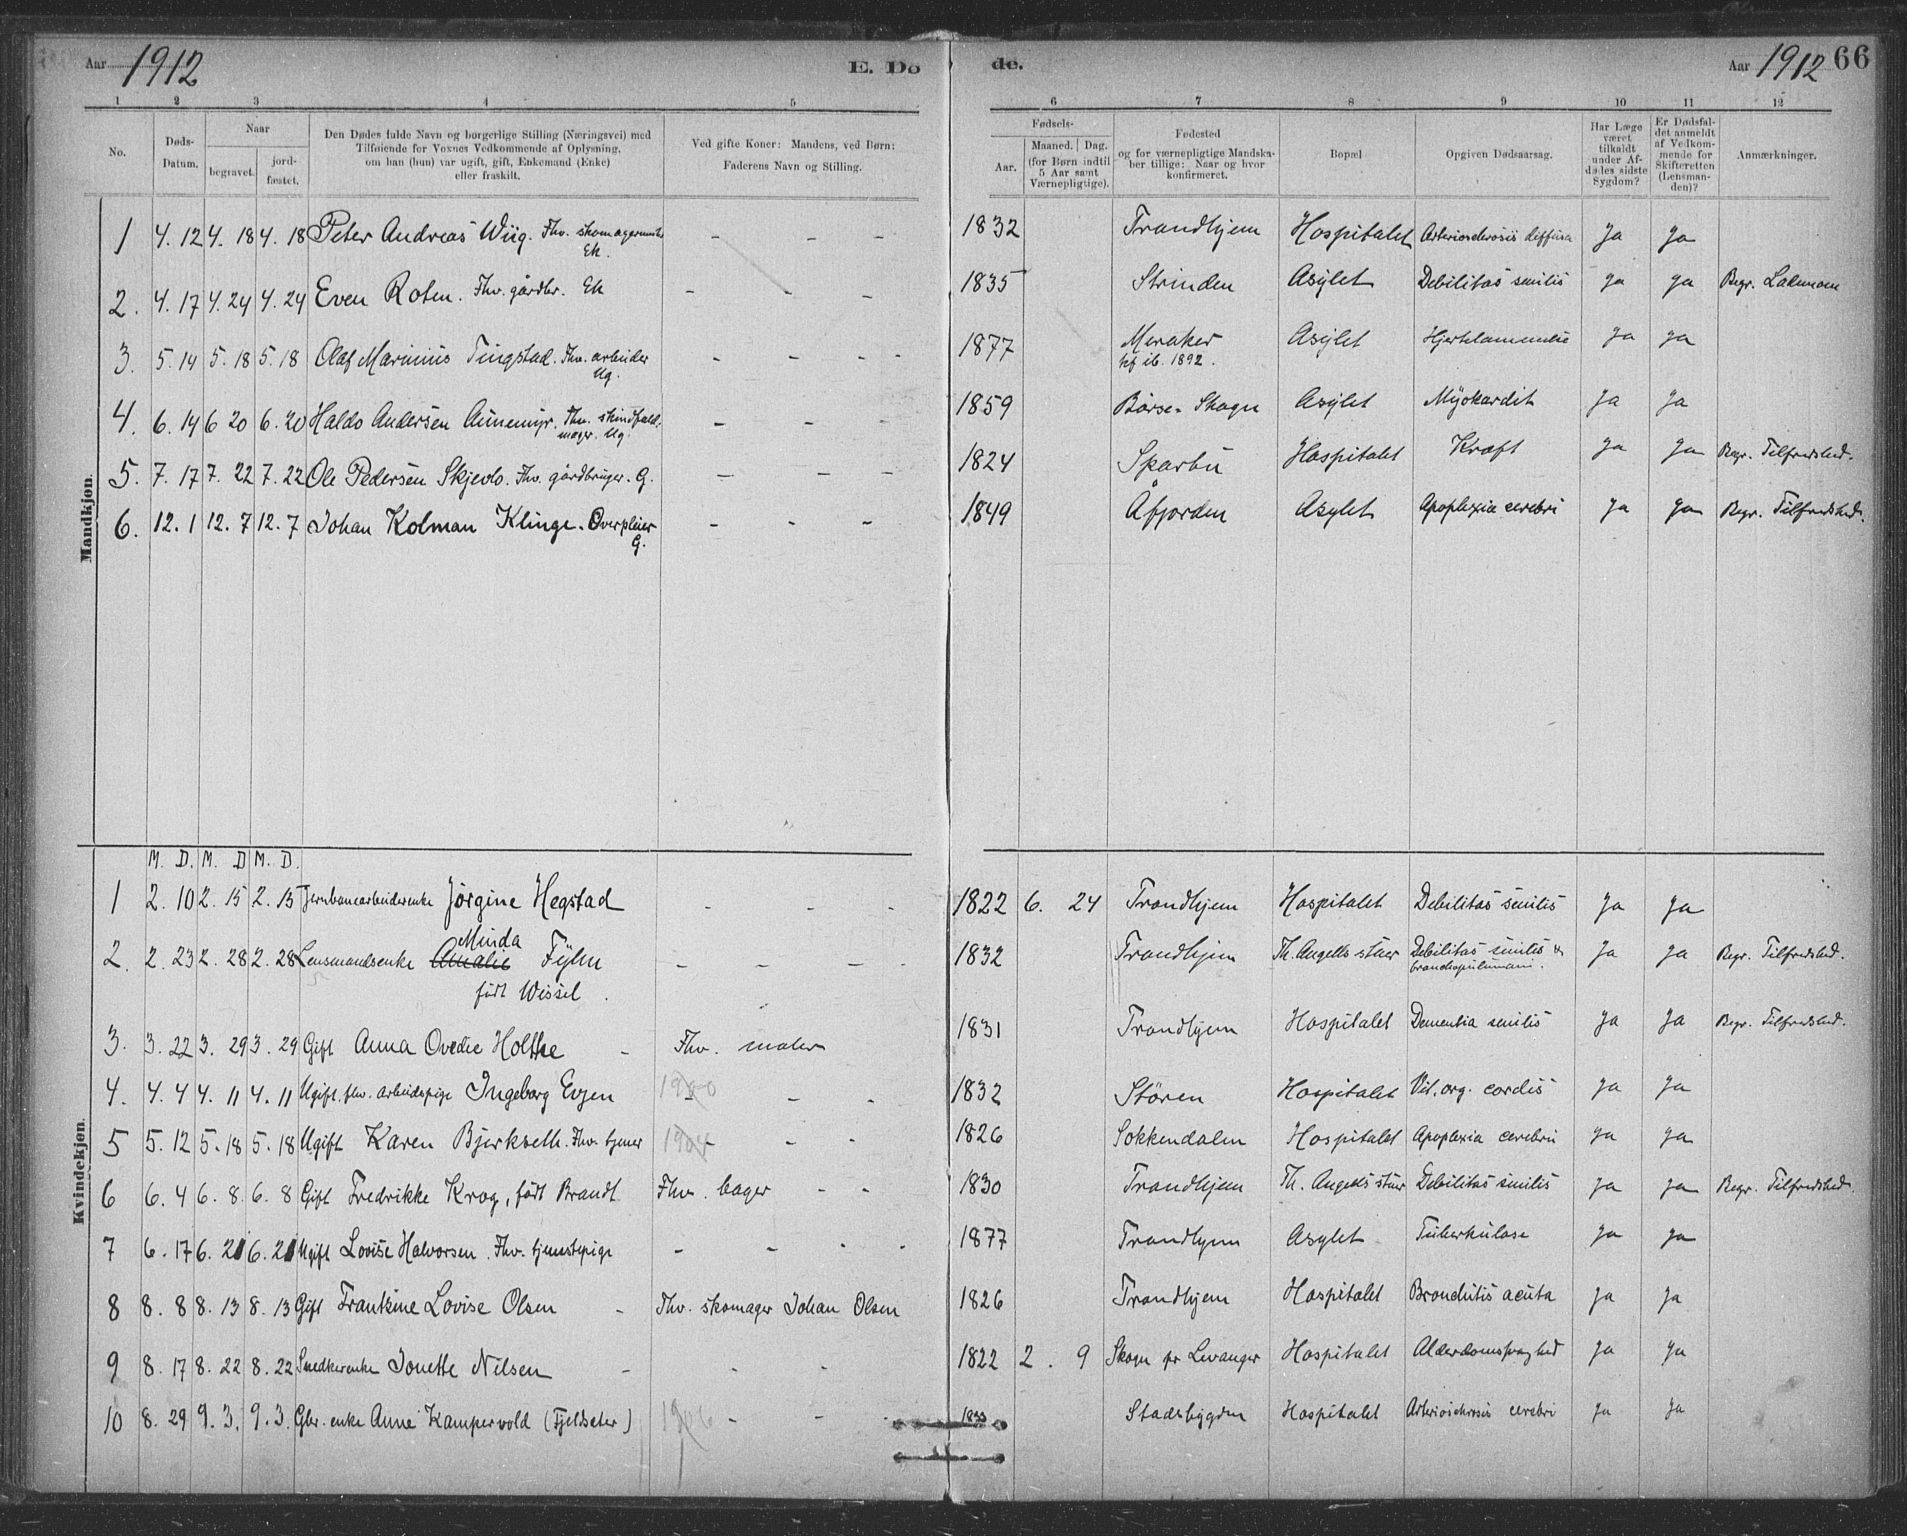 Aar 1912 E. Dö de. Aar 1912 66
1 2 3 4 5 6 7 8 9 10 11 12
No.
Døds-Datum.
Naar
begravet.
jord-fæstet.
Den Dødes fulde Navn og borgerlige Stilling (Næringsvei) med
Tilføiende for Voxnes Vedkommende af Oplysning,
om han (hun) var ugift, gift, Enkemand (Enke)
eller fraskilt.
Ved gifte Koner: Mandens, ved Børn:
Faderens Navn og Stilling.
Fødsels-
Aar.
Maaned. Dag.
(for Børn indtil
5 Aar samt
Værnepligtige).
Fødested
og for værnepligtige Mandska-
ber tillige: Naar og hvor
konfirmeret.
Bopæl
Opgiven Dødsaarsag.
Har Læge
været
tilkaldt
under Af-
dødes sidste
Sygdom?
Er Dødsfal-
det anmeldt
af Vedkom-
mende for
Skifteretten
(Lensman-
den)?
Anmærkninger.
Mandkjøn.
1 4. 12 4. 18 4. 18 Peter Andreas Wiig. Fhv. skomagermester Ek. - - - 1832 Trondhjem Hospitalet Arteriosclerosis diffusa Ja Ja
2. 4. 17 4. 24 4. 24 Even Roten. Fhv. gårdbr. Ek - - - 1835 Strinden Asylet Debilitas senilis Ja Ja Begr. Lademoen
3. 5. 14 5. 18 5. 18 Olaf Marinius Tingstad. Fhv. arbeider Ug. - - - - 1877 Meraker Asylet Hjertelammelse Ja Ja
kf ib. 1892.
4. 6. 14 6 20 6. 20 Haldo Andersen Aunemyr. Fhv. skindfeld-
mager. Ug. - - - 1859 Børse-Skogn Asylet Myokardit Ja Ja
5. 7. 17 7. 22 7. 22 Ole Pedersen Skjevlo. Fhv. gårdbruger. G. - - - 1824 Sparbu Hospitalet Kræft Ja Ja Begr. Tilfredshed.
6. 12. 1 12. 7 12. 7 Johan Kolman Klinge. Overpleier G. - - - 1849 Åfjorden Asylet Apoplexia cerebri Ja Ja Begr. Tilfredshed.
Kvindekjøn.
M. D. M. D M. D.
1 2. 10 2. 15 2. 15 Jernbanearbeiderenke Jørgine Hegstad - - - 1822 6. 24 Trondhjem Hospitalet Debilitas senilis Ja Ja
Minda
2. 2. 23 2. 28 2. 28 Lensmandsenke Amalie Fylm - - - - 1832 Trondhjem Th. Angells stuer Debilitas senilis Ja Ja Begr. Tilfredshed.
født Wissel.
3. 3. 22 3. 29 3. 29 Gift Anna Ovedie Holtke - Fhv. maler 1831 Trondhjem Hospitalet Dementia senilis Ja Ja Begr. Tilfredshed.
4. 4. 4 4. 11 4. 11 Ugift. fhv. arbeidspige Ingeborg Evjen 1900 - - - 1832 Støren Hospitalet Vit. org. cordis Ja Ja
5 5. 12 5. 18 5. 18 Ugift Karen Bjerkseth. Fhv. tjener 1904 - - - 1826 Sokkendalen Hospitalet Apoplexia cerebri Ja Ja
6 6. 4 6. 8. 6. 8 Gift Fredrikke Krog, født Brandt. Fhv. bager - - 1830 Trondhjem Th. Angells stuer Debilitas senilis Ja Ja Begr. Tilfredshed
7 6. 17 6. 21 6. 21 Ugift Lovise Halvorsen. Fhv. tjenestepige - - - - 1877 Trondhjem Asylet Tuberkulose Ja Ja
8 8. 8 8. 13 8. 13 Gift Frantzine Lovise Olsen - Fhv. skomager Johan Olsen 1826 Trondhjem Hospitalet Bronchitis acuta Ja Ja
9 8. 17 8. 22 8. 22 Snedkerenke Jonette Nilsen - - - 1822 2. 9 Skogn pr Levanger Hospitalet Alderdomssvaghed Ja Ja
10 8. 29 9. 3. 9. 3. Gbr. enke Anne Kampervold (Fjeldseter) 1906 - - - 1833 Stadsbygden Hospitalet Arteriosclerosis cerebri Ja Ja